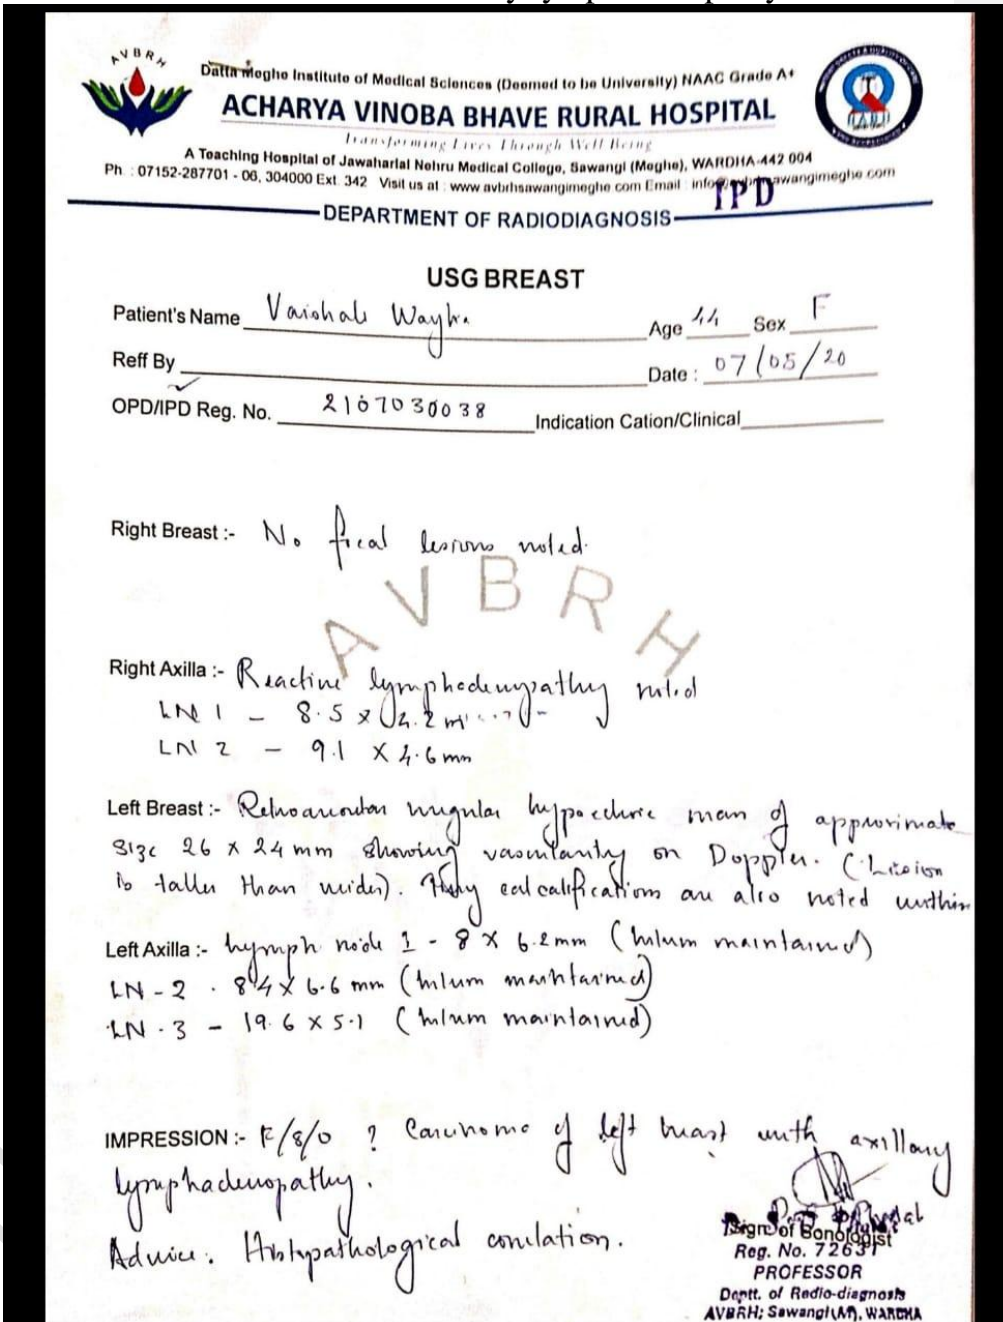 AVBRH
Datta Meghe Institute of Medical Sciences (Deemed to be University) NAAC Grade A+
ACHARYA VINOBA BHAVE RURAL HOSPITAL
Transforming Lives Through Well Being
A Teaching Hospital of Jawaharlal Nehru Medical College, Sawangi (Meghe), WARDHA-442 004
Ph. : 07152-287701 - 06, 304000 Ext. 342 Visit us at : www avbrhsawangimeghe com Email :
IPD
DEPARTMENT OF RADIODIAGNOSIS
USG BREAST
Patient's Name Vaishali Age 44 Sex F
Reff By Date : 07/05/20
OPD/IPD Reg. No. 2107030038 Indication Cation/Clinical
Right Breast :- No focal lesions noted.
AVBRH
Right Axilla :- Reactive lymphadenopathy noted
LN 1 - 8.5 x 4.2 m
LN 2 - 9.1 X 4.6 mm
Left Breast :- Retroareolar irregular hypoechoic mass of approximate
size 26 x 24 mm showing vascularity on Doppler. (Lesion
is taller than wider). calcifications are also noted within
Left Axilla :- lymph node 1 - 8 X 6.2 mm (hilum maintained)
LN - 2 . 8.4 X 6.6 mm (hilum maintained)
LN . 3 - 19.6 X 5.1 (hilum maintained)
IMPRESSION :- F/S/O ? Carcinoma of left breast with axillary
lymphadenopathy.
Advice : Histopathological correlation.
Sign of Sonologist
Reg. No. 72631
PROFESSOR
Deptt. of Radio-diagnosis
AVBRH; Sawangi(M), WARDHA